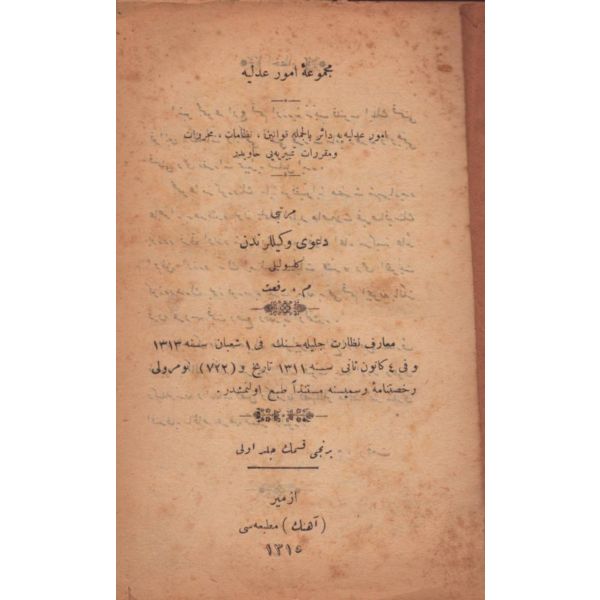 مجموعهٔ امور عدلیه
امور عدلیه یه دائر بالجمله قوانین ، نظامات ، محررات
و مقررات تمییزیه یی حاویدر
مرتبی
دعوی وکیللرندن
کلیبولیلی
م . رفعت
معارف نظارت جلیله سنك فی ١ شعبان سنه ١٣١٣
و فی ٤ کانون ثانی سنه ١٣١١ تاریخ و (٧٢٢) نومرولی
رخصتنامهٔ رسمیسنه مستنداً طبع اولنمشدر .
برنجی قسمك جلد اولی
ازمیر
( آهنك ) مطبعه سی
١٣١٥